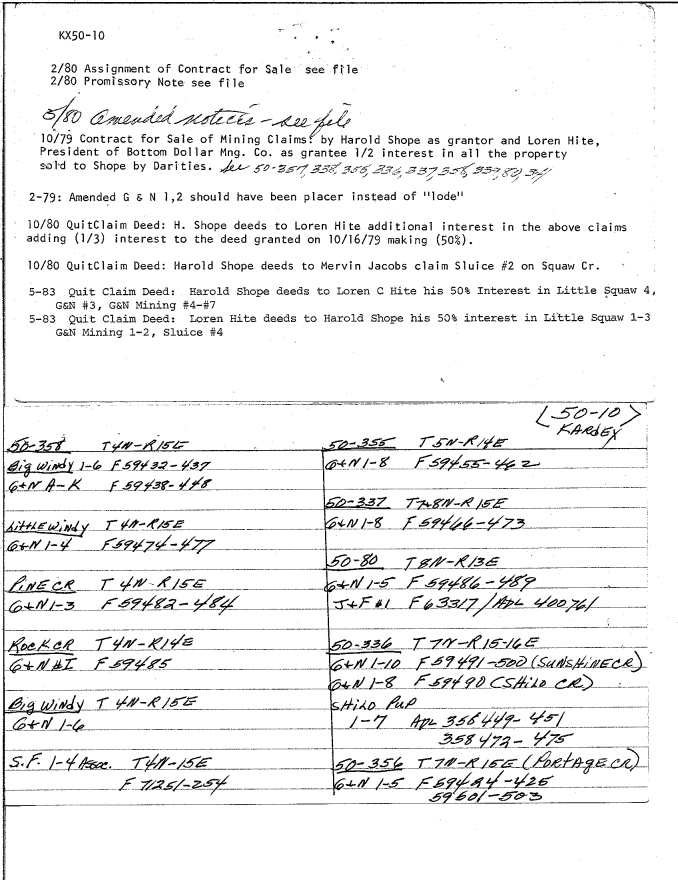 KX50-10
2/80 Assignment of Contract for Sale see file
2/80 Promissory Note see file
5/80 Amended notices - see file
10/79 Contract for Sale of Mining Claims: by Harold Shope as grantor and Loren Hite,
President of Bottom Dollar Mng. Co. as grantee 1/2 interest in all the property
sold to Shope by Darities. See 50-357, 338, 355, 336, 337, 358, 339, 80, 34
2-79: Amended G & N 1,2 should have been placer instead of "lode"
10/80 QuitClaim Deed: H. Shope deeds to Loren Hite additional interest in the above claims
adding (1/3) interest to the deed granted on 10/16/79 making (50%).
10/80 QuitClaim Deed: Harold Shope deeds to Mervin Jacobs claim Sluice #2 on Squaw Cr.
5-83 Quit Claim Deed: Harold Shope deeds to Loren C Hite his 50% Interest in Little Squaw 4,
G&N #3, G&N Mining #4-#7
5-83 Quit Claim Deed: Loren Hite deeds to Harold Shope his 50% interest in Little Squaw 1-3
G&N Mining 1-2, Sluice #4
50-10
KARDEX
50-358 T4N-R15E
Big Windy 1-6 F59432-437
G+N A-K F59438-448
Little Windy T4N-R15E
G+N 1-4 F59474-477
Pine CR T4N-R15E
G+N 1-3 F59482-484
Rock CR T4N-R14E
G+N #I F59485
Big Windy T4N-R15E
G+N 1-6
S.F. 1-4 Assoc. T4N-15E
F 71251-254
50-355 T5N-R14E
G+N 1-8 F59455-462
50-337 T7+8N-R15E
G+N 1-8 F59466-473
50-80 T8N-R13E
G+N 1-5 F59486-489
J+F #1 F63317/ADL 400761
50-336 T7N-R15-16E
G+N 1-10 F59491-500 (SUNSHINE CR)
G+N 1-8 F59490 (SHILO CR)
SHILO PUP
1-7 ADL 356449-451
358472-475
50-356 T7N-R15E (PORTAGE CR)
G+N 1-5 F59424-425
59501-503